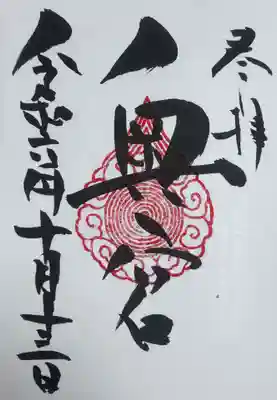 奉拝
奥宮
令和二年十月十三日